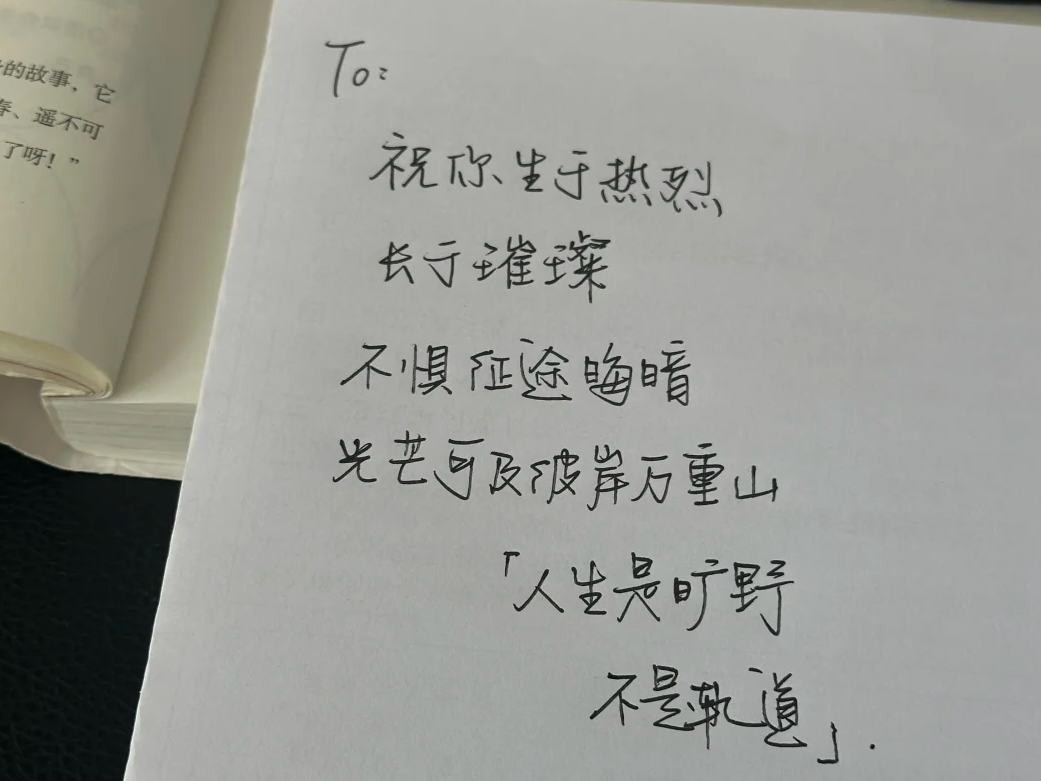 的故事，它
、遥不可
了呀！”
To:
祝你生于热烈
长于璀璨
不惧征途晦暗
光芒可及彼岸万重山
「人生是旷野
不是轨道」.